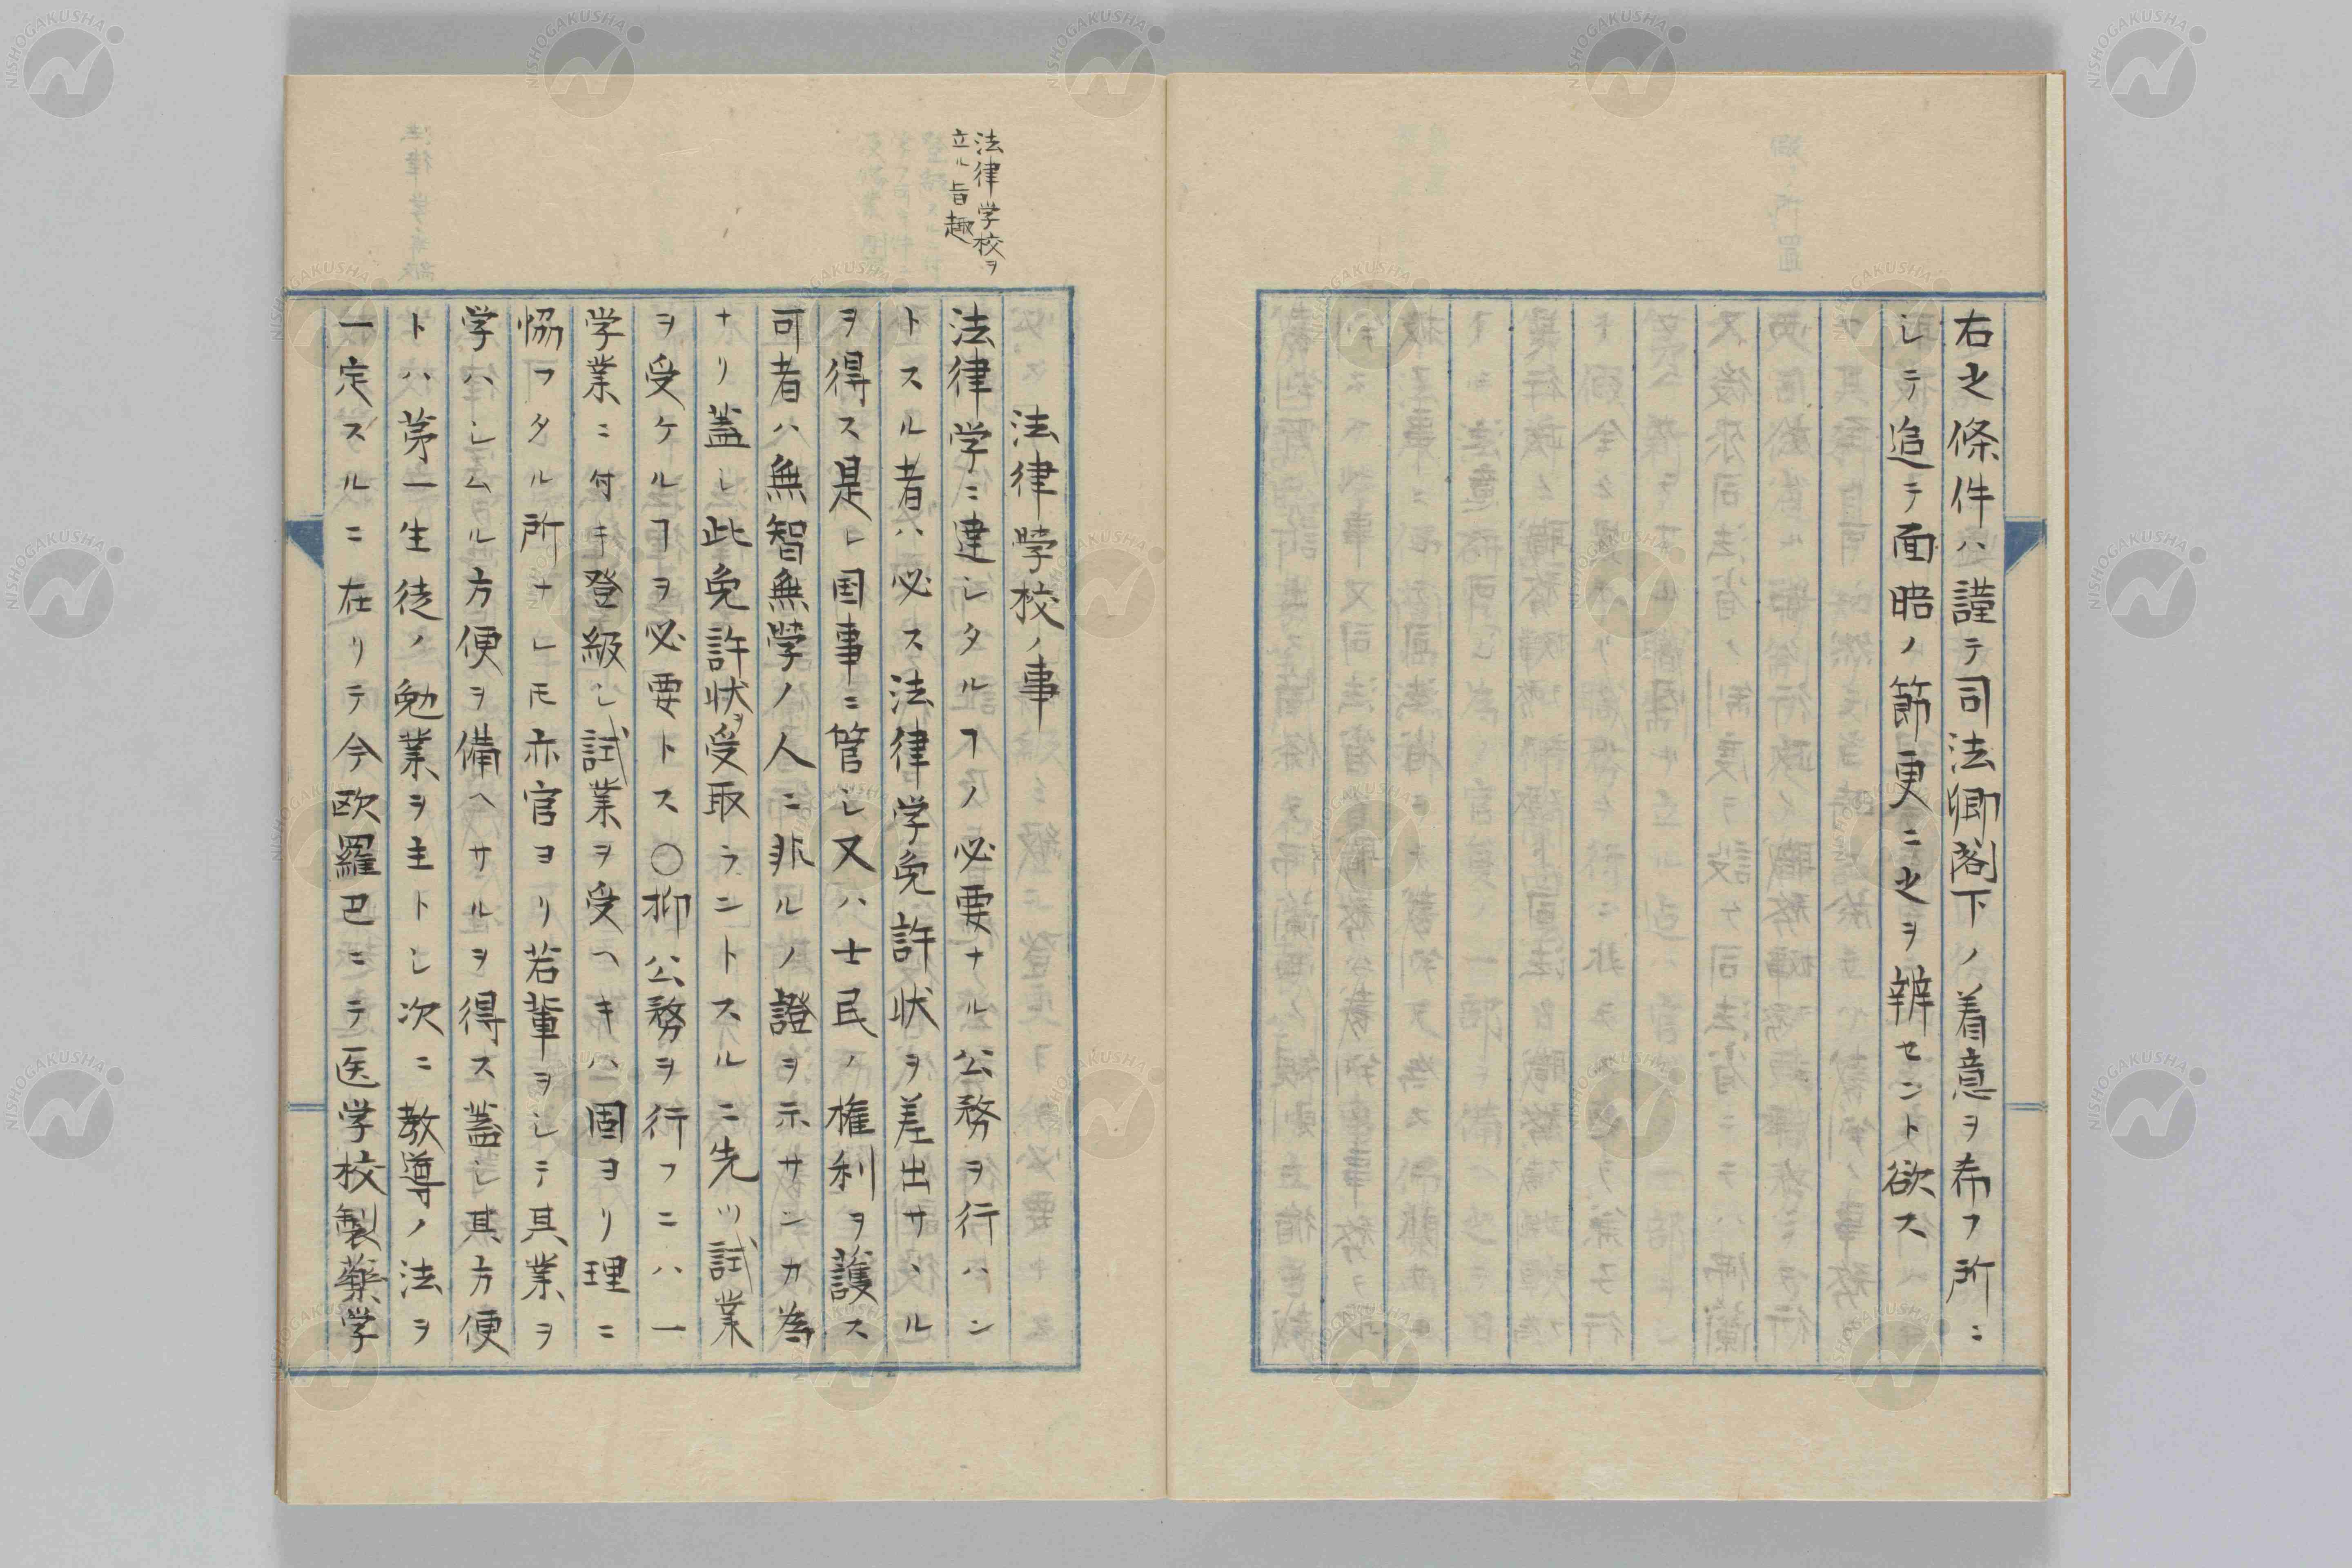 右之條件ハ謹テ司法卿閣下ノ着意ヲ希フ所ニ
シテ追テ面晤ノ節更ニ之ヲ辨セント欲ス
法律学校ヲ
立ル旨趣
法律学校ノ事
法律学ニ達シタルヿノ必要ナル公務ヲ行ハン
トスル者ハ必ス法律学免許状ヲ差出サヽル
ヲ得ス是レ国事ニ管シ又ハ士民ノ権利ヲ護ス
可者ハ無智無学ノ人ニ非ルノ證ヲ示サンカ為
ナリ蓋シ此免許状ヲ受取ラントスルニ先ツ試業
ヲ受ケルヿヲ必要トス〇抑公務ヲ行フニハ一
学業ニ付キ登級シ試業ヲ受ヘキハ固ヨリ理ニ
協フタル所ナレ𪜈亦官ヨリ若輩ヲシテ其業ヲ
学ハシムル方便ヲ備ヘサルヲ得ス蓋シ其方便
トハ苐一生徒ノ勉業ヲ主トシ次ニ教導ノ法ヲ
一定スルニ在リテ今欧羅巴ニテ医学校製藥学
NISHOGAKUSHA